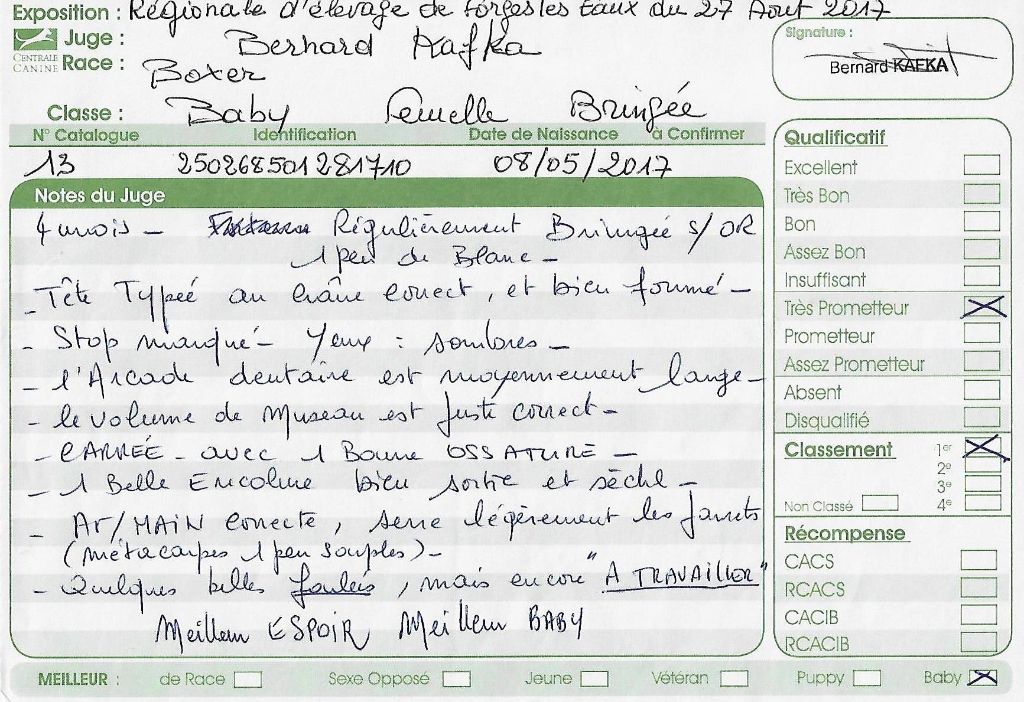 Exposition : Régionale d'élevage de forges les Eaux du 27 Août 2017
CENTRALE CANINE
Juge : Bernard Kafka
Race : Boxer
Signature :
Bernard KAFKA
Classe : Baby femelle Bringée
N° Catalogue Identification Date de Naissance à Confirmer
13 250268501281710 08/05/2017
Notes du Juge
4 mois - Régulièrement Bringée s/OR
1 peu de Blanc -
- Tête Typeé au crâne correct, et bien formé -
- Stop marqué - Yeux : sombres -
- l'Arcade dentaire est moyennement large -
- le volume de Museau est juste correct -
- CARRÉE - avec 1 Bonne OSSATURE -
- 1 Belle Encolure bien sortie et sèche -
- Ar/MAIN correcte, serre légèrement les jarrets
(métacarpes 1 peu souples) -
- Quelques belles foulées, mais encore "A TRAVAILLER"
Meilleur ESPOIR Meilleur BABY
Qualificatif
Excellent
Très Bon
Bon
Assez Bon
Insuffisant
Très Prometteur X
Prometteur
Assez Prometteur
Absent
Disqualifié
Classement 1er X
2e
3e
Non Classé 4e
Récompense
CACS
RCACS
CACIB
RCACIB
MEILLEUR : de Race Sexe Opposé Jeune Vétéran Puppy Baby X